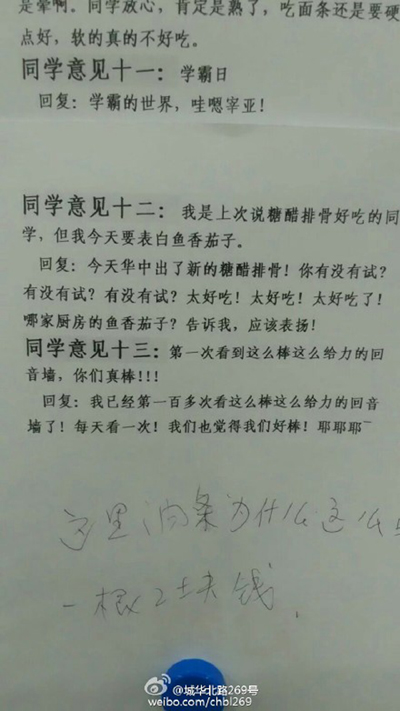 是晕啊。同学放心，肯定是熟了，吃面条还是要硬
点好，软的真的不好吃。
同学意见十一：学霸日
回复：学霸的世界，哇嗯宰亚！
同学意见十二：我是上次说糖醋排骨好吃的同
学，但我今天要表白鱼香茄子。
回复：今天华中出了新的糖醋排骨！你有没有试？
有没有试？有没有试？太好吃！太好吃！太好吃了！
哪家厨房的鱼香茄子？告诉我，应该表扬！
同学意见十三：第一次看到这么棒这么给力的回
音墙，你们真棒!!!
回复：我已经第一百多次看这么棒这么给力的回音
墙了！每天看一次！我们也觉得我们好棒！耶耶耶~
这里油条为什么这么
一根2块钱.
@城华北路269号
weibo.com/chbl269